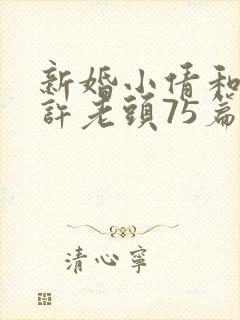 新婚小倩和
許老頭75篇
清心寧